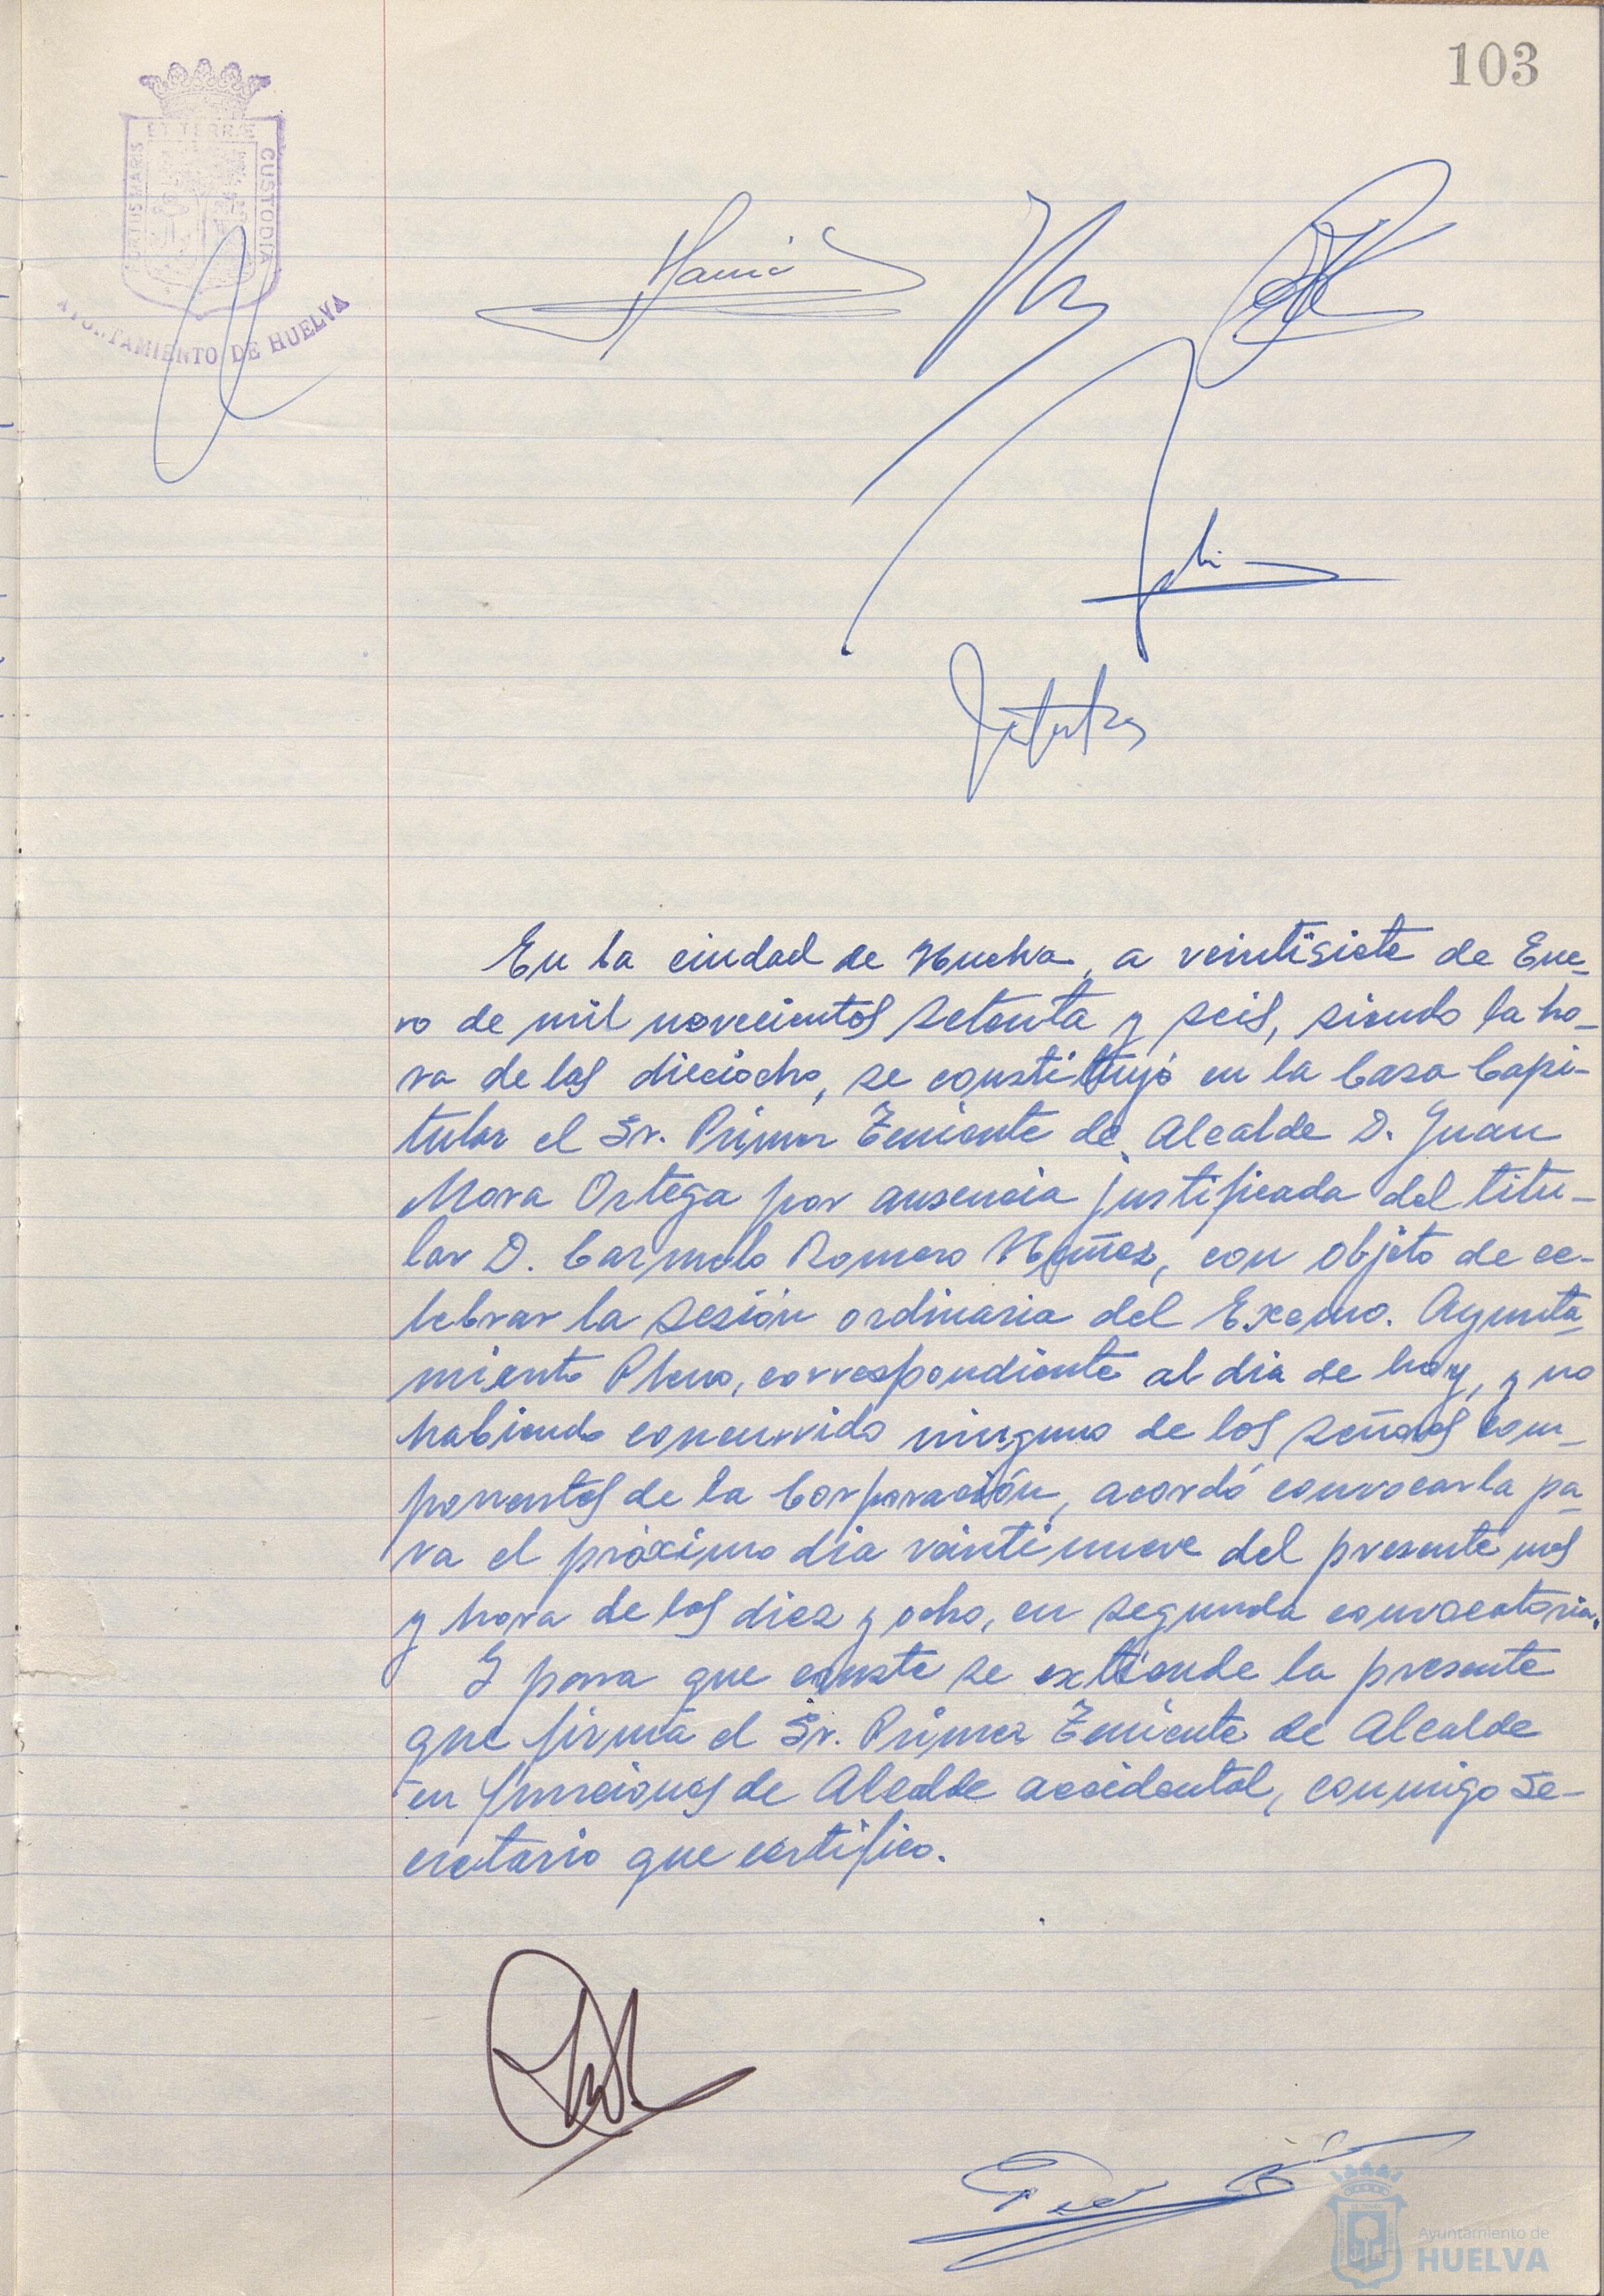 103
ET TERRÆ
PORTUS MARIS
CUSTODIA
AYUNTAMIENTO DE HUELVA
En la ciudad de Huelva, a veintisiete de Ene-
ro de mil novecientos setenta y seis, siendo la ho-
ra de las dieciocho, se constituyó en la Casa Capi-
tular el Sr. Primer Teniente de Alcalde D. Juan
Mora Ortega por ausencia justificada del titu-
lar D. Carmelo Romero Núñez, con objeto de ce-
lebrar la sesión ordinaria del Excmo. Ayunta-
miento Pleno, correspondiente al dia de hoy, y no
habiendo concurrido ninguno de los señores com-
ponentes de la Corporación, acordó convocarla pa-
ra el próximo dia veintinueve del presente mes
y hora de las diez y ocho, en segunda convocatoria.
Y para que conste se extiende la presente
que firma el Sr. Primer Teniente de Alcalde
en funciones de Alcalde accidental, conmigo Se-
cretario que certifico.
Ayuntamiento de
HUELVA